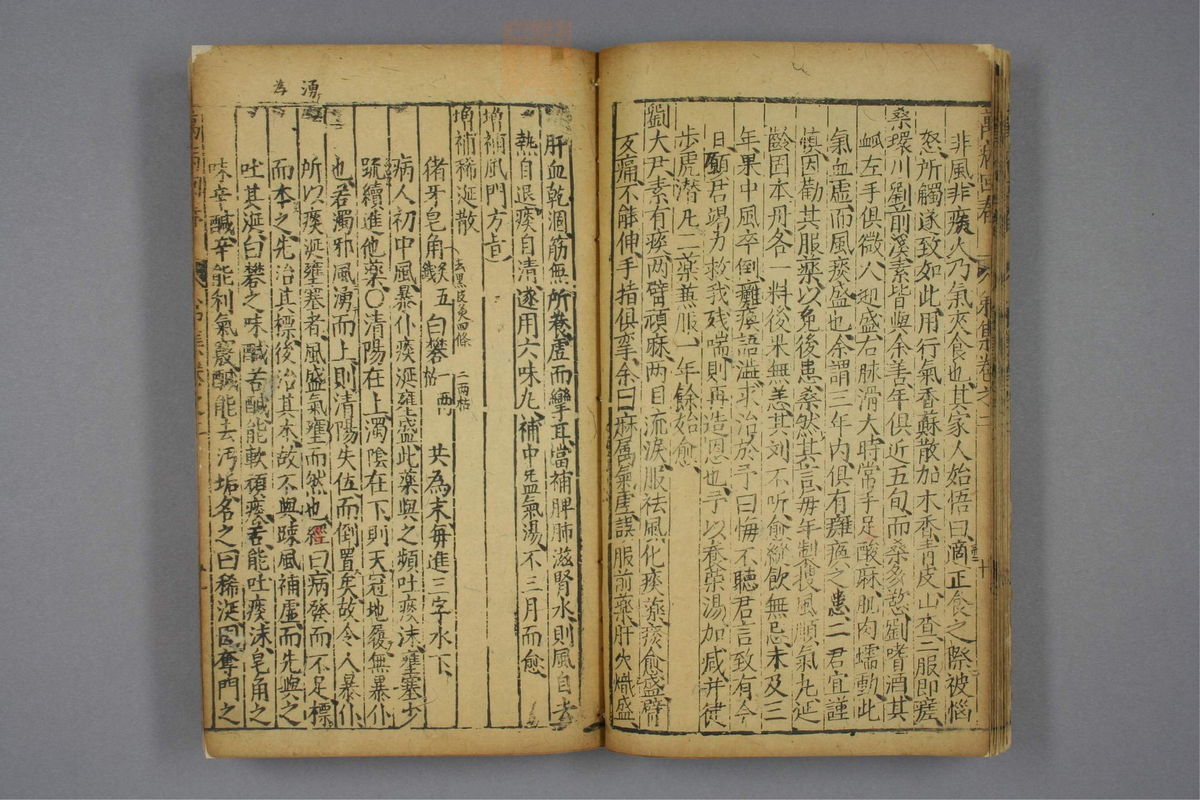 萬病回春 二ノ 利集卷之二 十
非風非痰火乃氣夾食也其家人始悟曰適正食之際被惱
怒所觸遂致如此用行氣香蘇散加木香青皮山查二服即瘥
桑環川劉前溪素皆與余善年俱近五旬而桑多慾劉嗜酒其
脉左手俱微人迎盛右脉滑大時常手足酸麻肌肉蠕動此
氣血虛而風痰盛也余謂三年内俱有癱瘓之患二君宜謹
慎因勸其服藥以免後患桑然其言每年製搜風順氣丸延
齡固本丹各一料後果無恙其刘不听愈縱飲無忌未及三
年果中風卒倒癱瘓語澁求治於予曰悔不聽君言致有今
日願君竭力救我残喘則再造恩也予以養榮湯加减并健
步虎潛丸二藥兼服一年餘始愈
劉大尹素有痰两臂頑麻两目流淚服祛風化痰藥痰愈盛臂
反痛不能伸手指俱挛余曰麻属氣虛誤服前藥肝火熾盛
肝血乾涸筋無所養虛而攣耳當補脾肺滋腎水則風自去
熱自退痰自清遂用六味丸補中益氣湯不三月而愈
增補風門方旨
增補稀涎散
猪牙皂角 五 去黑皮炙四條 白礬 一两 二两枯 共為末每進三字水下
病人初中風暴仆痰涎壅盛此藥與之頻吐痰沫壅塞少
踈續進他藥〇清陽在上濁陰在下則天冠地履無暴仆
也若濁邪風湧而上則清陽失位而倒置矣故令人暴仆
所以痰涎壅塞者風盛氣壅而然也經曰病發而不足標
而本之先治其標後治其本故不與踈風補虛而先與之
吐其涎曰礬之味醎苦醎能軟頑痰苦能吐痰沫皂角之
味辛鹹辛能利氣竅鹹能去污垢名之曰稀涎固奪門之
湧
為